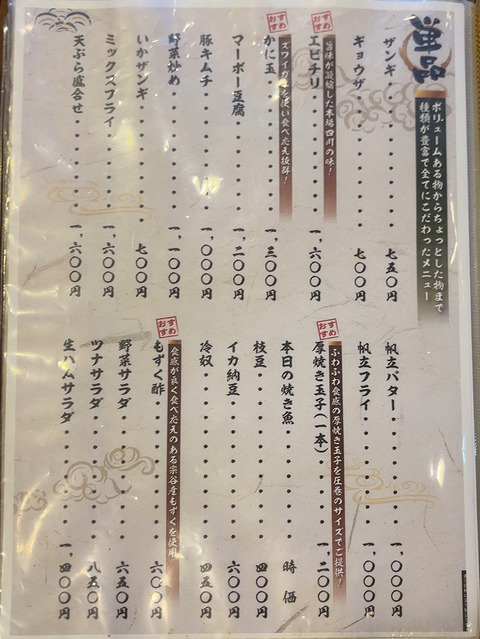 単品
ボリュームある物からちょっとした物まで
種類が豊富で全てにこだわったメニュー
ザンギ・・・・・・・・・七五〇円
ギョウザ・・・・・・・・七〇〇円
おすすめ
旨味が凝縮した本場四川の味!
エビチリ・・・・・・・・一、六〇〇円
おすすめ
ズワイガニを使い食べ応え抜群!
かに玉・・・・・・・・・一、三〇〇円
マーボー豆腐・・・・・・一、二〇〇円
豚キムチ・・・・・・・・一、〇〇〇円
野菜炒め・・・・・・・・一、一〇〇円
いかザンギ・・・・・・・七〇〇円
ミックスフライ・・・・・一、六〇〇円
天ぷら盛合せ・・・・・・一、六〇〇円
帆立バター・・・・・・・一、〇〇〇円
帆立フライ・・・・・・・一、〇〇〇円
おすすめ
ふわふわ食感の厚焼き玉子を圧巻のサイズでご提供!
厚焼き玉子(一本)・・・・一、二〇〇円
本日の焼き魚・・・・・・時価
枝豆・・・・・・・・・・四〇〇円
イカ納豆・・・・・・・・六〇〇円
冷奴・・・・・・・・・・四五〇円
おすすめ
食感が良く食べ応えのある宗谷産もずくを使用
もずく酢・・・・・・・・六〇〇円
野菜サラダ・・・・・・・六五〇円
ツナサラダ・・・・・・・八五〇円
生ハムサラダ・・・・・・一、四〇〇円